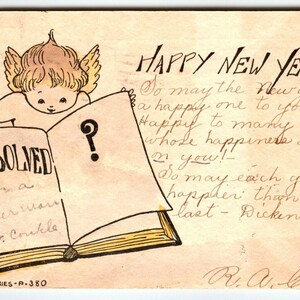 HAPPY NEW YE
So may the New
a happy one to yo
Happy to many
whose happiness
on you! -
So may each y
happier than
last - Dicken
SOLVED
?
R. A. C
IES-P-380